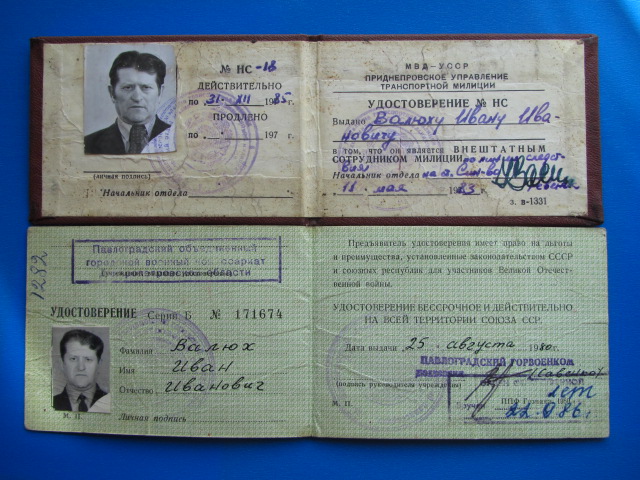 № НС-18
ДЕЙСТВИТЕЛЬНО
по 31·XII 1985г.
ПРОДЛЕНО
по " 197 г.
(личная подпись)
Начальник отдела
МВД—УССР
ПРИДНЕПРОВСКОЕ УПРАВЛЕНИЕ
ТРАНСПОРТНОЙ МИЛИЦИИ
УДОСТОВЕРЕНИЕ № НС
Выдано Валюху Ивану Ива-
новичу
в том, что он является ВНЕШТАТНЫМ
СОТРУДНИКОМ МИЛИЦИИ по линии следст-
вия
Начальник отдела на ст.
11 мая 1983 г.
з. в-1331
1282
Павлоградский объединенный
городской военный комиссариат
Днепропетровской области
УДОСТОВЕРЕНИЕ Серия Б № 171674
Фамилия Валюх
Имя Иван
Отчество Иванович
М. П. Личная подпись
Предъявитель удостоверения имеет право на льготы
и преимущества, установленные законодательством СССР
и союзных республик для участников Великой Отечест-
венной войны.
УДОСТОВЕРЕНИЕ БЕССРОЧНОЕ И ДЕЙСТВИТЕЛЬНО
НА ВСЕЙ ТЕРРИТОРИИ СОЮЗА ССР.
Дата выдачи 25 августа 1980 г.
ПАВЛОГРАДСКИЙ ГОРВОЕНКОМ
(подпись руководителя учреждения)
М. П.
22.0 86 г